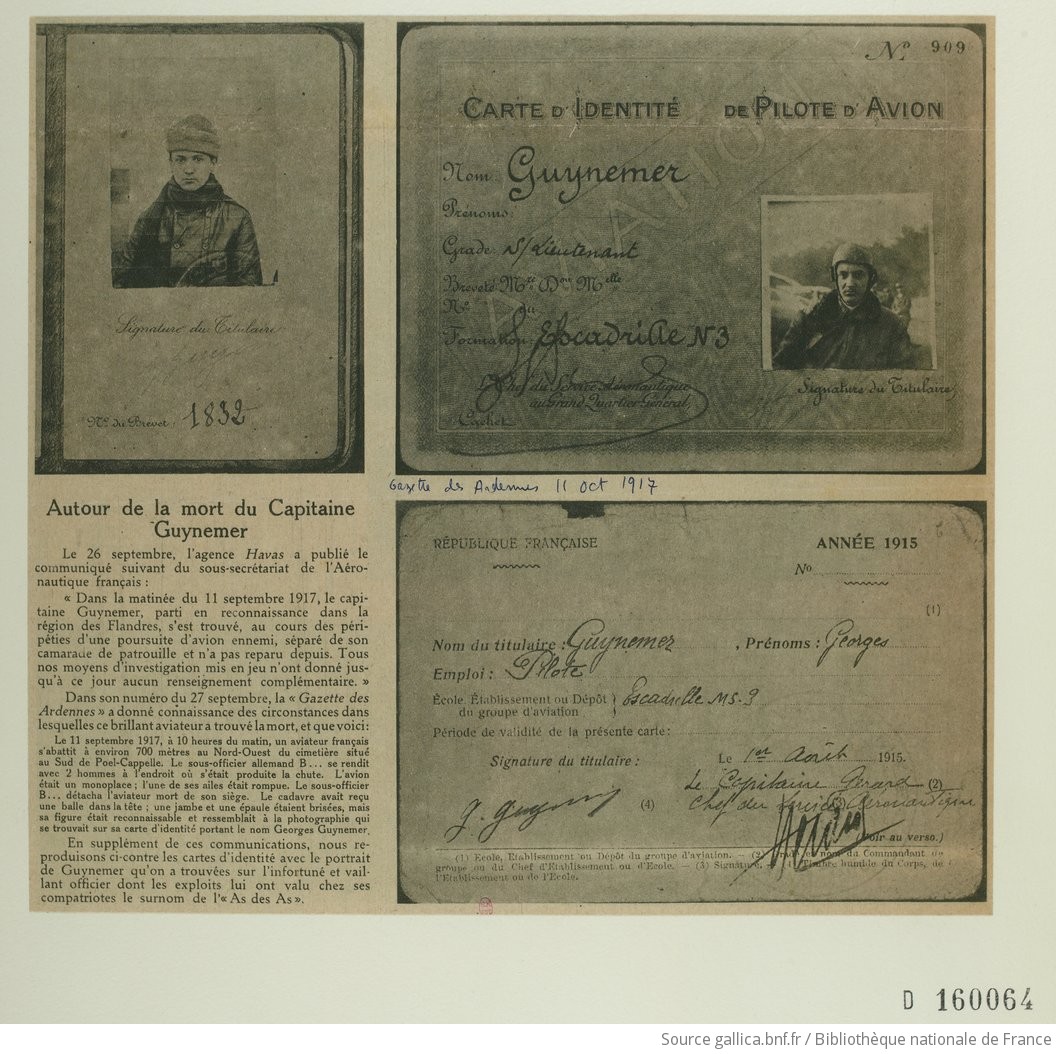 Signature du Titulaire
No du Brevet: 1832
No 909
CARTE D'IDENTITÉ DE PILOTE D'AVION
Nom. Guynemer
Prénoms:
Grade: S/Lieutenant
Breveté Mre Don Melle
No du
Formation: Escadrille N3
Le Chef du Service Aéronautique
au Grand Quartier Général,
Cachet
Signature du Titulaire,
Gazette des Ardennes 11 oct 1917
Autour de la mort du Capitaine
Guynemer
Le 26 septembre, l'agence Havas a publié le
communiqué suivant du sous-secrétariat de l'Aéro-
nautique français :
« Dans la matinée du 11 septembre 1917, le capi-
taine Guynemer, parti en reconnaissance dans la
région des Flandres, s'est trouvé, au cours des péri-
péties d'une poursuite d'avion ennemi, séparé de son
camarade de patrouille et n'a pas reparu depuis. Tous
nos moyens d'investigation mis en jeu n'ont donné jus-
qu'à ce jour aucun renseignement complémentaire. »
Dans son numéro du 27 septembre, la « Gazette des
Ardennes » a donné connaissance des circonstances dans
lesquelles ce brillant aviateur a trouvé la mort, et que voici:
Le 11 septembre 1917, à 10 heures du matin, un aviateur français
s'abattit à environ 700 mètres au Nord-Ouest du cimetière situé
au Sud de Poel-Cappelle. Le sous-officier allemand B... se rendit
avec 2 hommes à l'endroit où s'était produite la chute. L'avion
était un monoplace ; l'une de ses ailes était rompue. Le sous-officier
B... détacha l'aviateur mort de son siège. Le cadavre avait reçu
une balle dans la tête ; une jambe et une épaule étaient brisées, mais
sa figure était reconnaissable et ressemblait à la photographie qui
se trouvait sur sa carte d'identité portant le nom Georges Guynemer.
En supplément de ces communications, nous re-
produisons ci-contre les cartes d'identité avec le portrait
de Guynemer qu'on a trouvées sur l'infortuné et vail-
lant officier dont les exploits lui ont valu chez ses
compatriotes le surnom de l'« As des As ».
RÉPUBLIQUE FRANÇAISE
ANNÉE 1915
No
(1)
Nom du titulaire : Guynemer , Prénoms : Georges
Emploi : Pilote
École, Établissement ou Dépôt
du groupe d'aviation } Escadrille MS-3
Période de validité de la présente carte :
Le 1er Août 1915.
Signature du titulaire :
Le Capitaine Gérard (2)
Chef du Service Aéronautique
G. Guynemer (4)
(Voir au verso.)
(1) Ecole, Etablissement ou Dépôt du groupe d'aviation. — (2) Grade et nom du Commandant du
groupe ou du Chef d'Etablissement ou d'Ecole. — (3) Signature. — (4) Timbre humide du Corps, de
l'Etablissement ou de l'Ecole.
D 160064
Source gallica.bnf.fr / Bibliothèque nationale de France